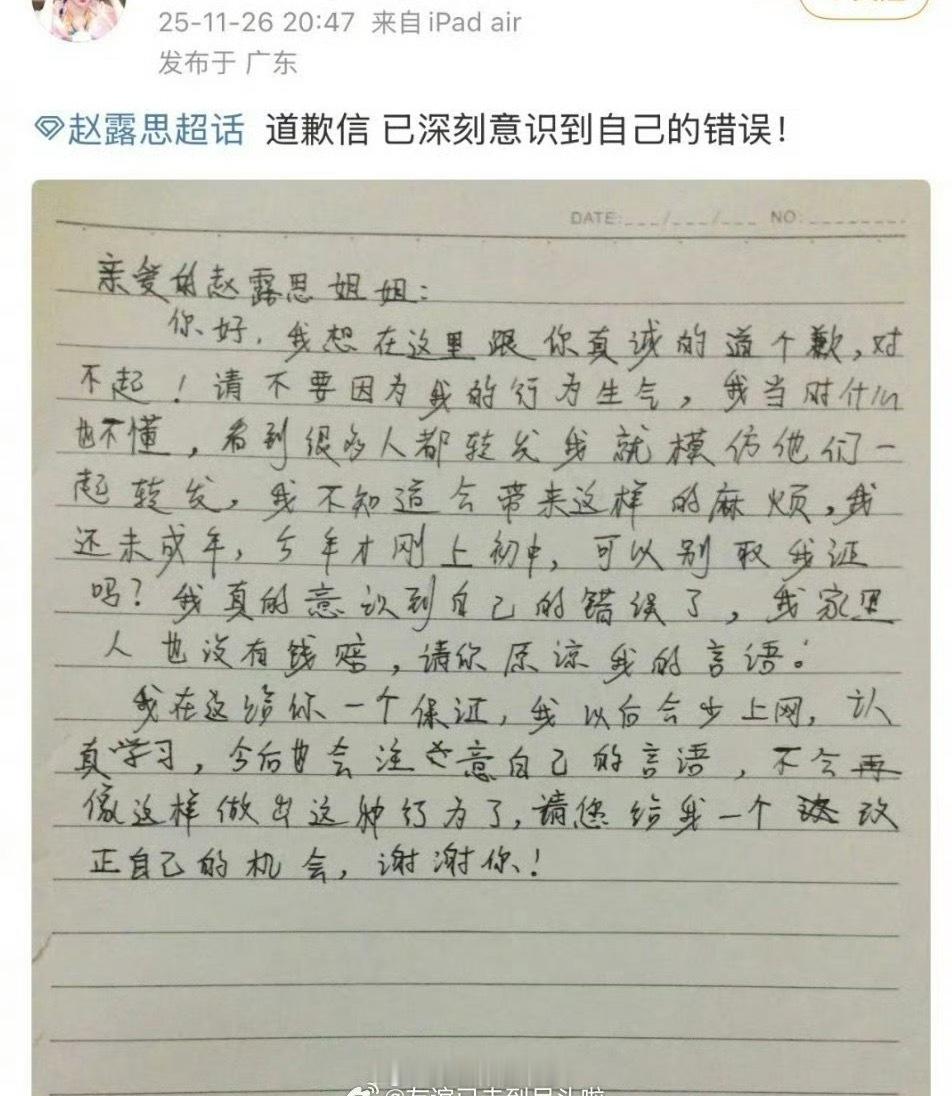 25-11-26 20:47 来自 iPad air
发布于 广东
赵露思超话 道歉信 已深刻意识到自己的错误!
DATE:___/___/___ NO:________
亲爱的赵露思姐姐:
你好,我想在这里跟你真诚的道个歉,对
不起!请不要因为我的行为生气,我当时什么
也不懂,看到很多人都转发我就模仿他们一
起转发,我不知道会带来这样的麻烦,我
还未成年,今年才刚上初中,可以别取我证
吗?我真的意识到自己的错误了,我家里
人也没有钱赔,请你原谅我的言语。
我在这给你一个保证,我以后会少上网,认
真学习,今后也会注意自己的言语,不会再
像这样做出这种行为了,请您给我一个改
正自己的机会,谢谢你!